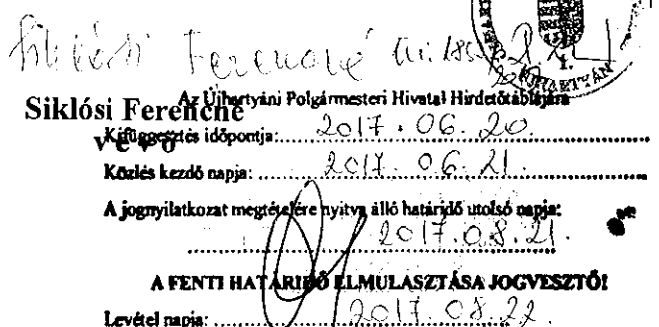 Siklósi Ferencné
Siklósi Ferencné
vevő
Az Újhartyáni Polgármesteri Hivatal Hirdetőtáblájára
Kifüggesztés időpontja: 2017. 06. 20.
Közlés kezdő napja: 2017. 06. 21.
A jognyilatkozat megtételére nyitva álló határidő utolsó napja:
2017. 08. 21.
A FENTI HATÁRIDŐ ELMULASZTÁSA JOGVESZTŐ!
Levétel napja: 2017. 08. 22.